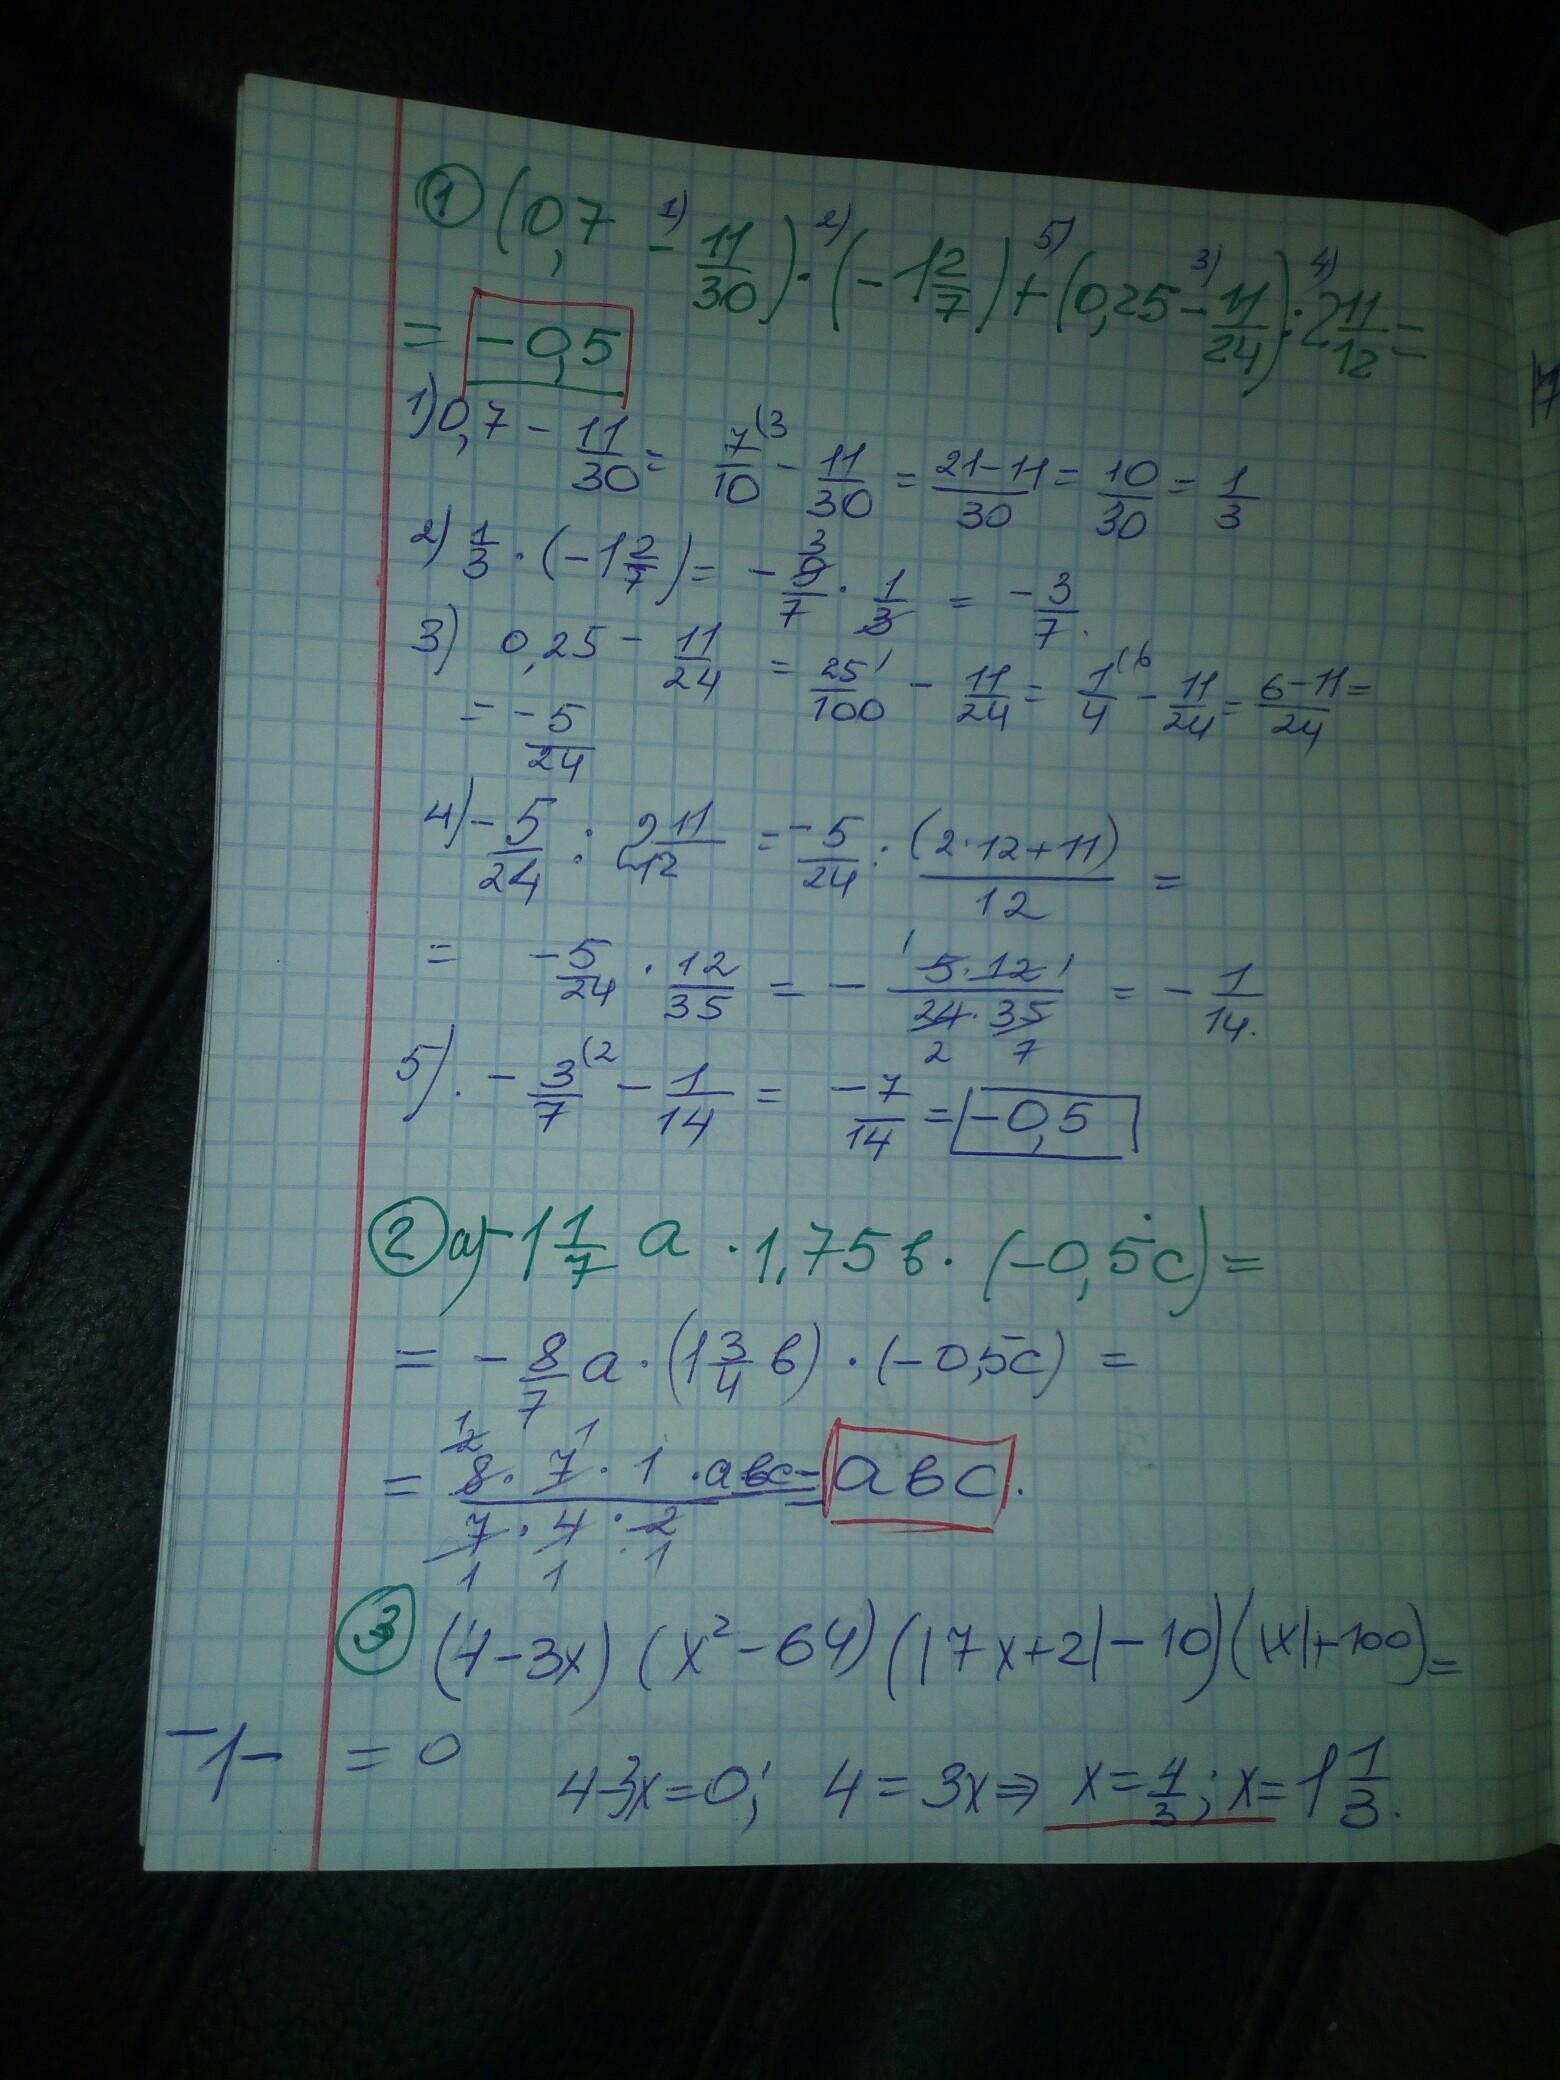 ① (0,7 - 11/30) · (-1 2/7) + (0,25 - 11/24) : 2 11/12 =
1) 2) 5) 3) 4)
= -0,5
1) 0,7 - 11/30 = 7/10 (3 - 11/30 = 21-11/30 = 10/30 = 1/3
2) 1/3 · (-1 2/7) = - 9/7 3 · 1/3 = -3/7.
3) 0,25 - 11/24 = 25/100 1 - 11/24 = 1/4 (6 - 11/24 = 6-11/24 =
= -5/24
4) -5/24 : 2 11/12 = -5/24 : (2·12+11)/12 =
= -5/24 · 12/35 = - 1 5·12 1/24·35 2 7 = - 1/14.
5). - 3/7 (2 - 1/14 = -7/14 = -0,5
② а) -1 1/7 а · 1,75в · (-0,5с) =
= - 8/7 а · (1 3/4 в) · (-0,5с) =
1 2 1
= 8·7·1·авс/7·4·2 = авс.
1 1 1
③ (4-3x) (x²-64) (|7x+2|-10) (|x|+100) =
-1- = 0 4-3x=0; 4=3x ⇒ x=4/3; x=1 1/3.